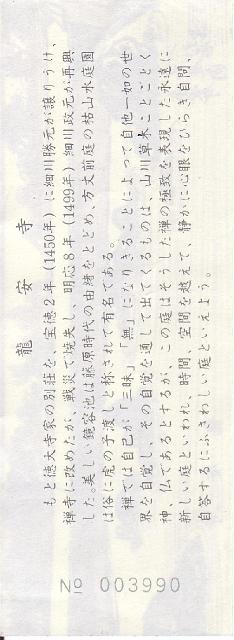 龍安寺
もと徳大寺家の別荘を、宝徳２年(1450年)に細川勝元が譲りうけ、
禅寺に改めたが、戦災で焼失し、明応８年(1499年)細川政元が再興
した。美しい鏡容池は藤原時代の由緒をとどめ、方丈前庭の枯山水庭園
は俗に虎の子渡しと称されて有名である。
禅では自己が「三昧」「無」になりきることによって自他一如の世
界を自覚し、その自覚を通して出てくるものは、山川草木ことごとく
神、仏であるとするが、この庭はそうした禅の極致を表現した永遠に
新しい庭といわれ、時間、空間を越えて、静かに心眼をひらき自問、
自答するにふさわしい庭といえよう。
No 003990